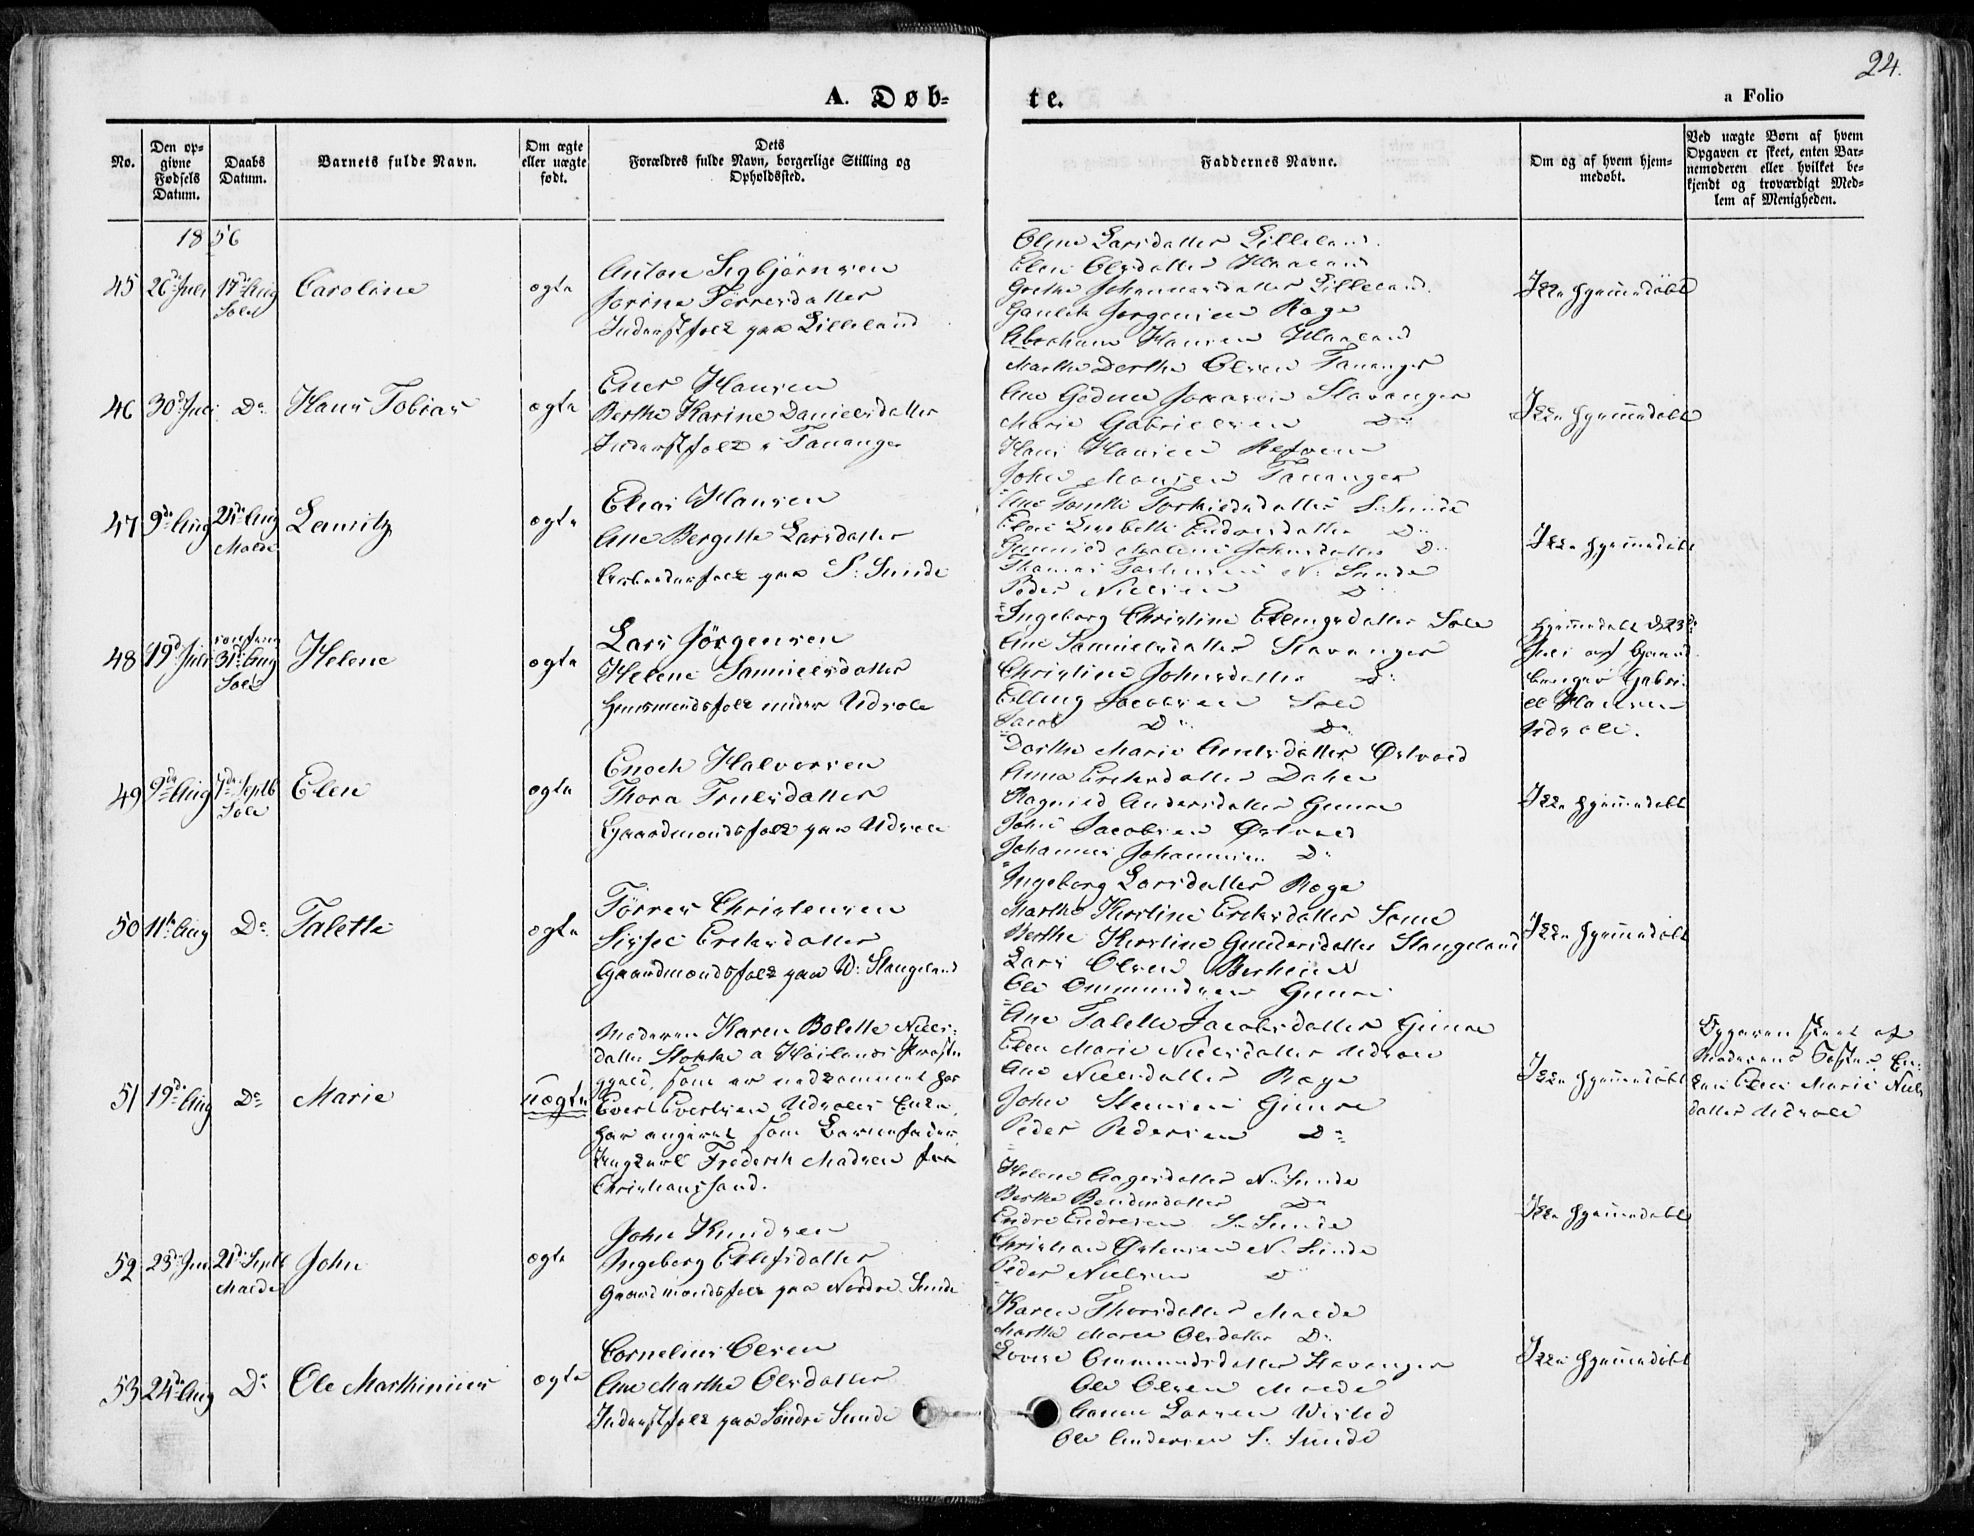 24.
A. Døb-
te.
a Folio
No.
Den op-
givne
Fødsels
Datum.
Daabs
Datum.
Barnets fulde Navn.
Om ægte
eller uægte
født.
Dets
Forældres fulde Navn, borgerlige Stilling og
Opholdssted.
Faddernes Navne.
Om og af hvem hjem-
medøbt.
Ved uægte Børn af hvem
Opgaven er skeet, enten Bar-
nemoderen eller hvilket be-
kjendt og troværdigt Med-
lem af Menigheden.
1856
45 26de Juli 17de Aug
Sole
Caroline
ægte
Anton Sigbjørnsen
Jorine Tørresdatter
Inderstfolk paa Lilleland
Olene Larsdatter Lilleland.
Elen Olsdatter Haaland
Grethe Johannesdatter Lilleland.
Gaulik Jørgensen Røge
Abraham Hansen Haaland
Ikke hjemmedøbt
46 30de Juli Do
Hans Tobias
ægte
Enes Hansen
Berthe Karine Danielsdatter
Inderstfolk i Tananger
Marthe Dorthe Olsen Tananger
Ane Godine Jonasen Stavanger
Marie Gabrielsen Do
Hans Hansen Refsem
John Monsen Tananger
Ikke hjemmedøbt
47 9de Aug 24de Aug
Malde
Lauritz
ægte
Elias Hansen
Ane Bergitte Larsdatter
Arbeidesfolk paa S: Sunde
Ane Tomette Torkildsdatter S. Sunde
Elen Lisebette Endresdatter Do
Gunnild Malene Johnsdatter Do
Thomas Torkensen N: Sunde
Peder Nielsen Do
Ikke hjemmedøbt
48 19de Juli
31te Aug
Sole
Helene
ægte
Lars Jørgensen
Helene Samuelsdatter
Huusmandsfolk under Udsole
Ingeborg Christine Ellingsdatter Sole
Ane Samuelsdatter Stavanger
Christine Johnsdatter Do
Elling Jacobsen Sole
Jacob Do Do
Hjemmedøbt d. 23de
Juli af Gaard-
bruger Gabri-
el Hansen
Udsole.
49 9de Aug 7de Septb
Sole
Elen
ægte
Enoch Halvorsen
Thora Truelsdatter
Gaardmandsfolk paa Udsole
Dorthe Marie Andersdatter Østvold
Anna Eriksdatter Dahle
Ragnild Andersdatter Gimre
John Jacobsen Østvold
Johannes Johannesen Do
Ikke hjemmedøbt
50 11te Aug Do
Talette
ægte
Tørres Christensen
Sissel Eriksdatter
Gaardmandsfolk paa N: Stangeland
Ingeborg Larsdatter Røge
Marthe Kirstine Eriksdatter Some
Berthe Kirstine Gundersdatter Stangeland
Lars Olsen Berheim
Ole Ommundsen Gimre
Ikke hjemmedøbt
51 19de Aug Do
Marie
uægte
Moderen Karen Bolette Niels-
datter Stokke a Høilands Præste-
gjæld, som er nedkommet hos
Evert Evertsen Udsoles Enke,
har angivet som Barnefader
Ungkarl Frederik Madsen fra
Christianssand.
Ane Talette Jacobsdatter Gimre
Elen Marie Nielsdatter Udsole
Ane Nielsdatter Røge
John Steensen Gimre
Peder Pedersen Do
Ikke hjemmedøbt
Opgaven skeet af
Moderens Søster En-
ken Elen Marie Niels-
datter Udsole
52 23de Juni 21de Septb
Malde
John
ægte
John Knudsen
Ingeborg Ellefsdatter
Gaardmandsfolk paa Nordre Sunde
Helene Aagesdatter N. Sunde
Berthe Bendiksdatter Do
Endre Endresen S. Sunde
Christian Østensen N. Sunde
Peder Nielsen Do
Ikke hjemmedøbt
53 24de Aug Do
Ole Marthinius
ægte
Cornelius Olsen
Ane Marthe Olsdatter
Inderstfolk paa Søndre Sunde
Karen Thorsdatter Malde
Marthe Marie Olsdatter Do
Lovise Ommundsdatter Stavanger
Ole Olsen Malde
Gunne Larsen Wisted
Ole Andersen S. Sunde
Ikke hjemmedøbt